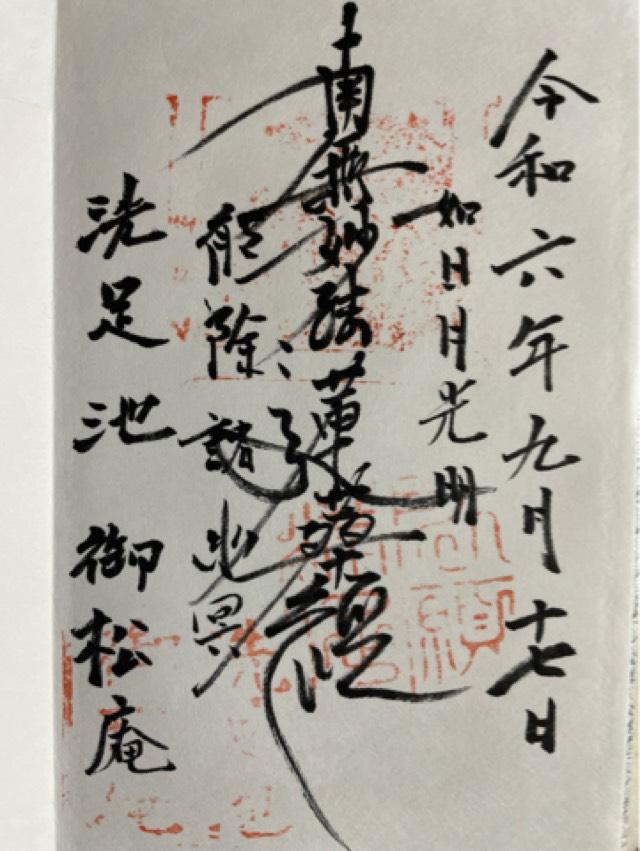 令和六年九月十七日
如日月光明
南無妙法蓮華経
能除諸幽冥
洗足池 御松庵